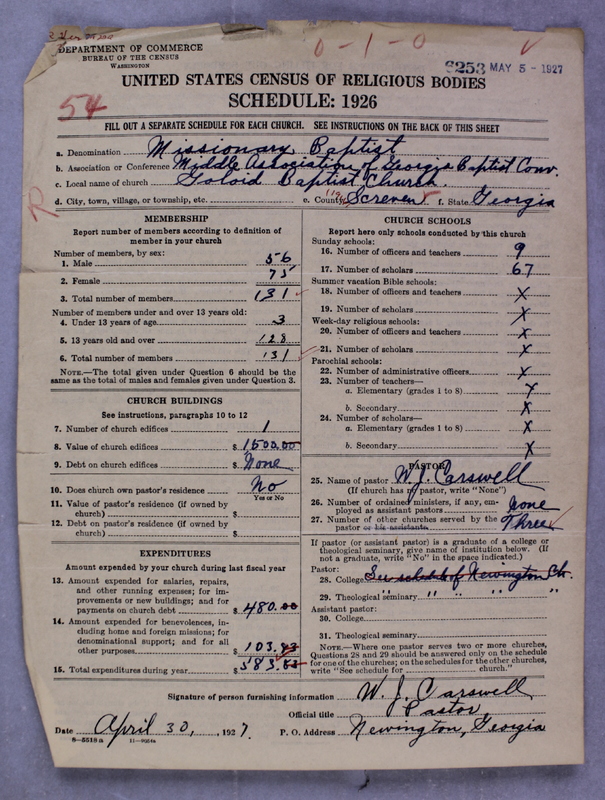 0-1-0
DEPARTMENT OF COMMERCE
BUREAU OF THE CENSUS
WASHINGTON
6253 MAY 5 - 1927
UNITED STATES CENSUS OF RELIGIOUS BODIES
54
SCHEDULE: 1926
FILL OUT A SEPARATE SCHEDULE FOR EACH CHURCH. SEE INSTRUCTIONS ON THE BACK OF THIS SHEET
a. Denomination Missionary Baptist
b. Association or Conference Middle Association of Georgia Baptist Conv.
c. Local name of church Goloid Baptist Church.
R
d. City, town, village, or township, etc. e. County Screven f. State Georgia
MEMBERSHIP
Report number of members according to definition of
member in your church
Number of members, by sex:
1. Male 56
2. Female 75
3. Total number of members 131
Number of members under and over 13 years old:
4. Under 13 years of age 3
5. 13 years old and over 128
6. Total number of members 131
NOTE.—The total given under Question 6 should be the
same as the total of males and females given under Question 3.
CHURCH BUILDINGS
See instructions, paragraphs 10 to 12
7. Number of church edifices 1
8. Value of church edifices $ 1500.00
9. Debt on church edifices $ None
10. Does church own pastor's residence? No
Yes or No
11. Value of pastor's residence (if owned by
church) $
12. Debt on pastor's residence (if owned by
church) $
EXPENDITURES
Amount expended by your church during last fiscal year
13. Amount expended for salaries, repairs,
and other running expenses; for im-
provements or new buildings; and for
payments on church debt $ 480.00
14. Amount expended for benevolences, in-
cluding home and foreign missions; for
denominational support; and for all
other purposes $ 103.83
15. Total expenditures during year $ 583.83
CHURCH SCHOOLS
Report here only schools conducted by this church
Sunday schools:
16. Number of officers and teachers 9
17. Number of scholars 67
Summer vacation Bible schools:
18. Number of officers and teachers X
19. Number of scholars X
Week-day religious schools:
20. Number of officers and teachers X
21. Number of scholars X
Parochial schools:
22. Number of administrative officers X
23. Number of teachers—
a. Elementary (grades 1 to 8) X
b. Secondary X
24. Number of scholars—
a. Elementary (grades 1 to 8) X
b. Secondary X
PASTOR
25. Name of pastor W. J. Carswell
(If church has no pastor, write "None")
26. Number of ordained ministers, if any, em-
ployed as assistant pastors None
27. Number of other churches served by the
pastor or his assistants Three
If pastor (or assistant pastor) is a graduate of a college or
theological seminary, give name of institution below. (If
not a graduate, write "No" in the space indicated.)
Pastor:
28. College See schedule of Newington Ch.
29. Theological seminary " " " " "
Assistant pastor:
30. College
31. Theological seminary
NOTE.—Where one pastor serves two or more churches,
Questions 28 and 29 should be answered only on the schedule
for one of the churches; on the schedules for the other churches,
write "See schedule for church."
Signature of person furnishing information W. J. Carswell
Official title Pastor
Date April 30, 1927. P. O. Address Newington, Georgia